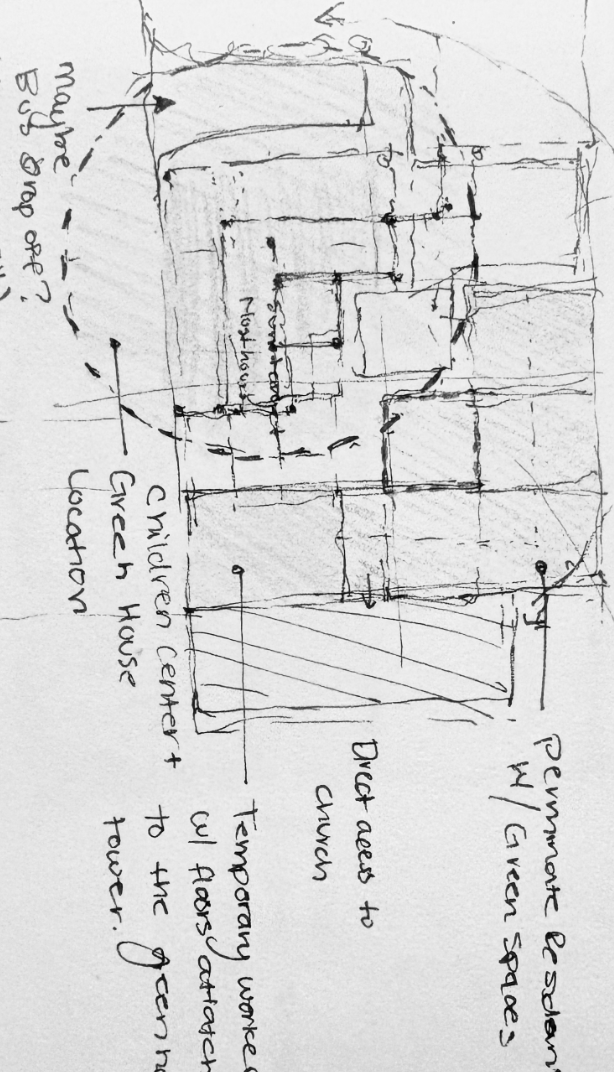 Perminate Residen
W/ Green spaces
Direct acess to
church
Temporary worke
w/ floors attatch
to the green h
tower.
Children Center +
Green House
Location
maybe
Bus Drop off?